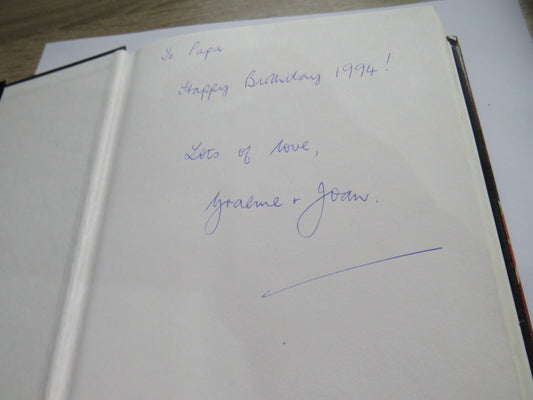 To Papa
Happy Birthday 1994!
Lots of love,
Graeme + Joan.